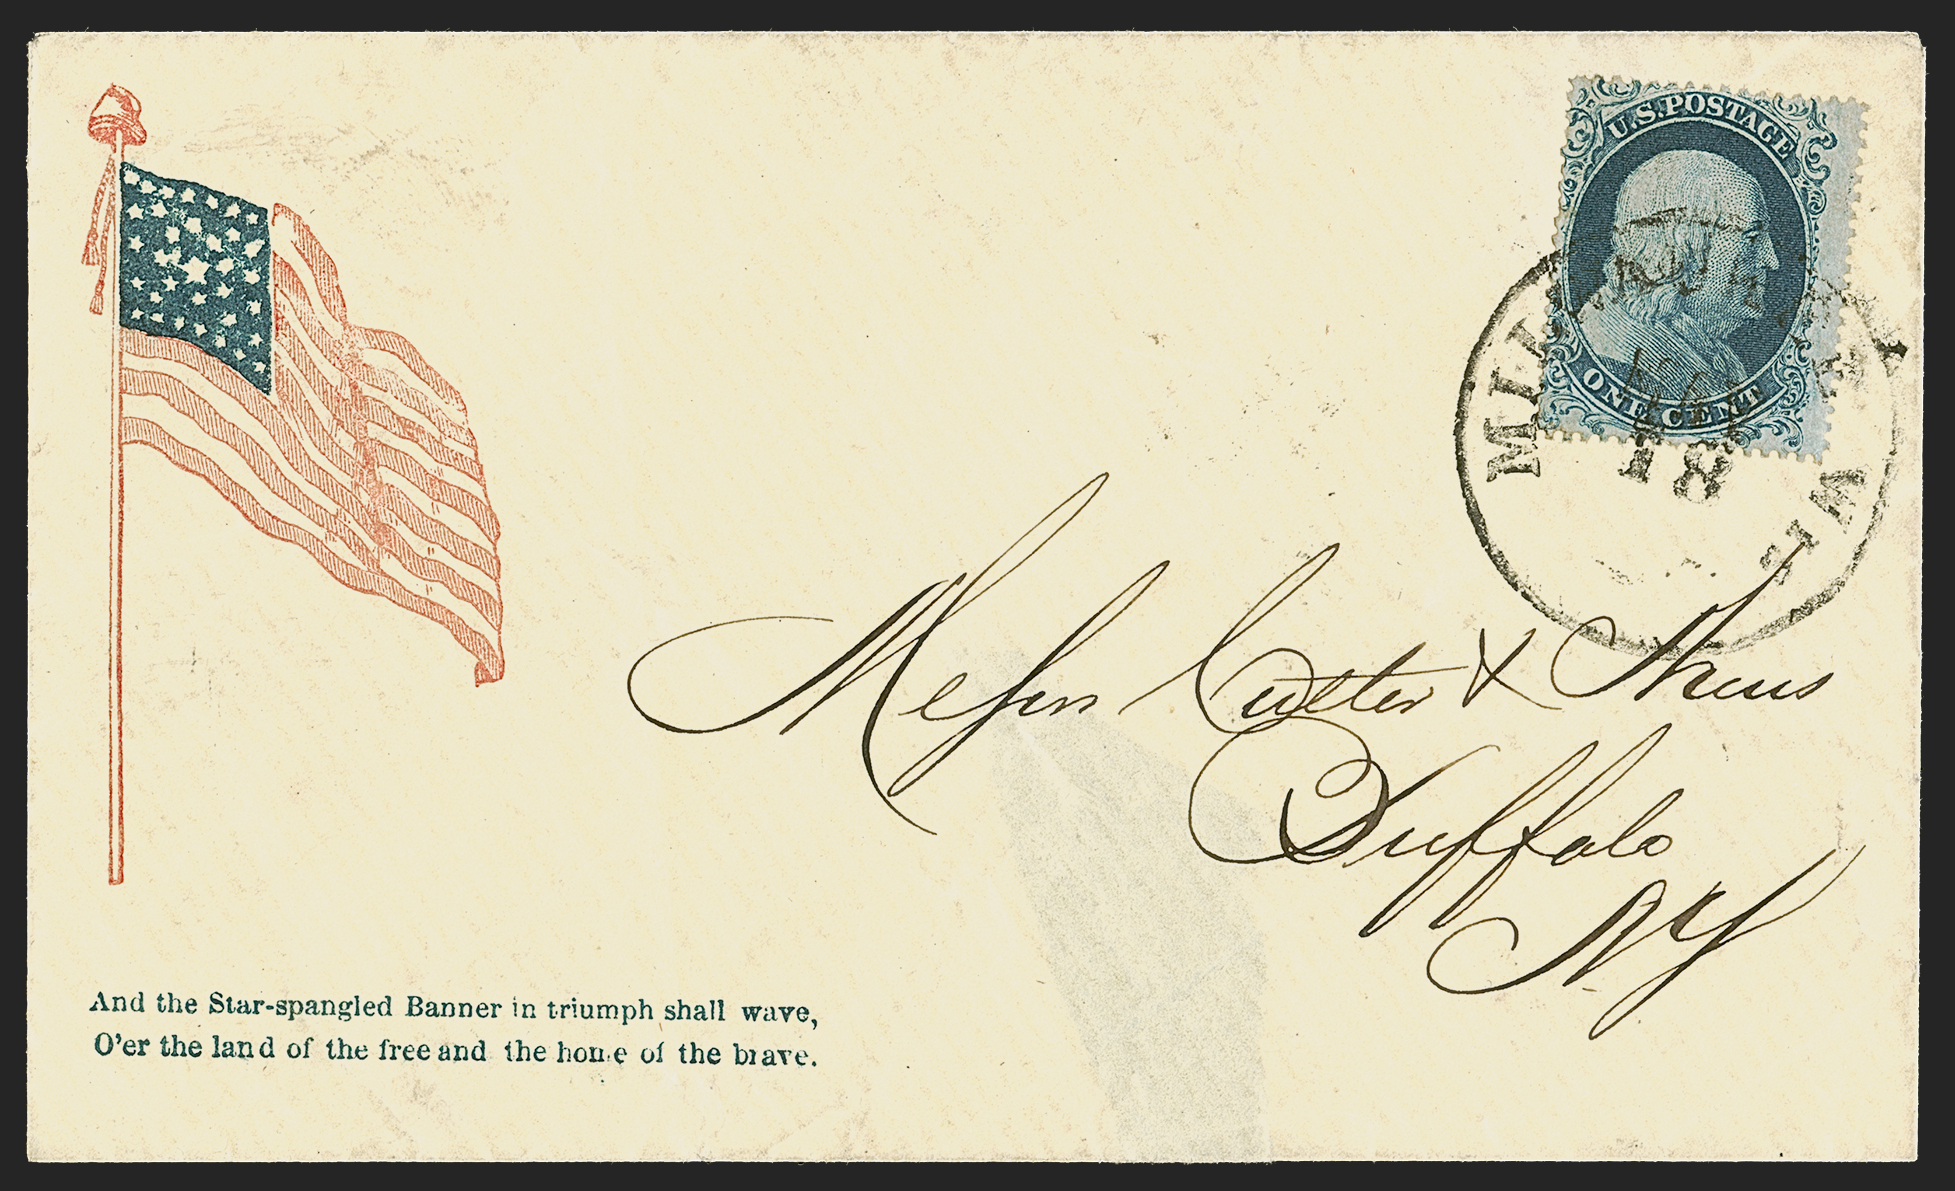 U.S. POSTAGE
ONE CENT
18
Messrs Cutter &
Buffalo
NY
And the Star-spangled Banner in triumph shall wave,
O'er the land of the free and the home of the brave.